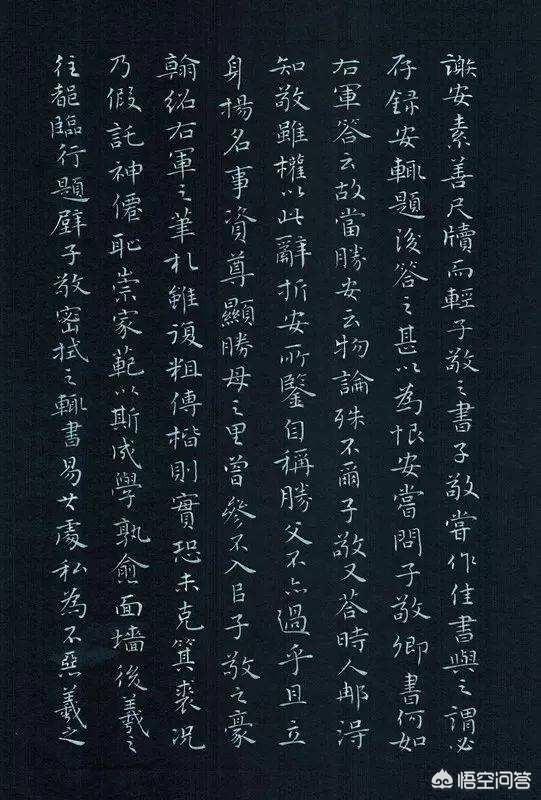 謝安素善尺牘而輕子敬之書子敬嘗作佳書與之謂必
存録安輒題後答之甚以為恨安嘗問子敬卿書何如
右軍答云故當勝安云物論殊不爾子敬又荅時人那得
知敬雖權以此辭折安所鑒自稱勝父不亦過乎且立
身揚名事資尊顯勝母之里曾參不入以子敬之豪
翰紹右軍之筆札雖復粗傳楷則實恐未克箕裘况
乃假託神僊恥崇家範以斯成學孰愈面墻後羲之
往都臨行題壁子敬密拭之輒書易其處私為不惡羲之
悟空问答